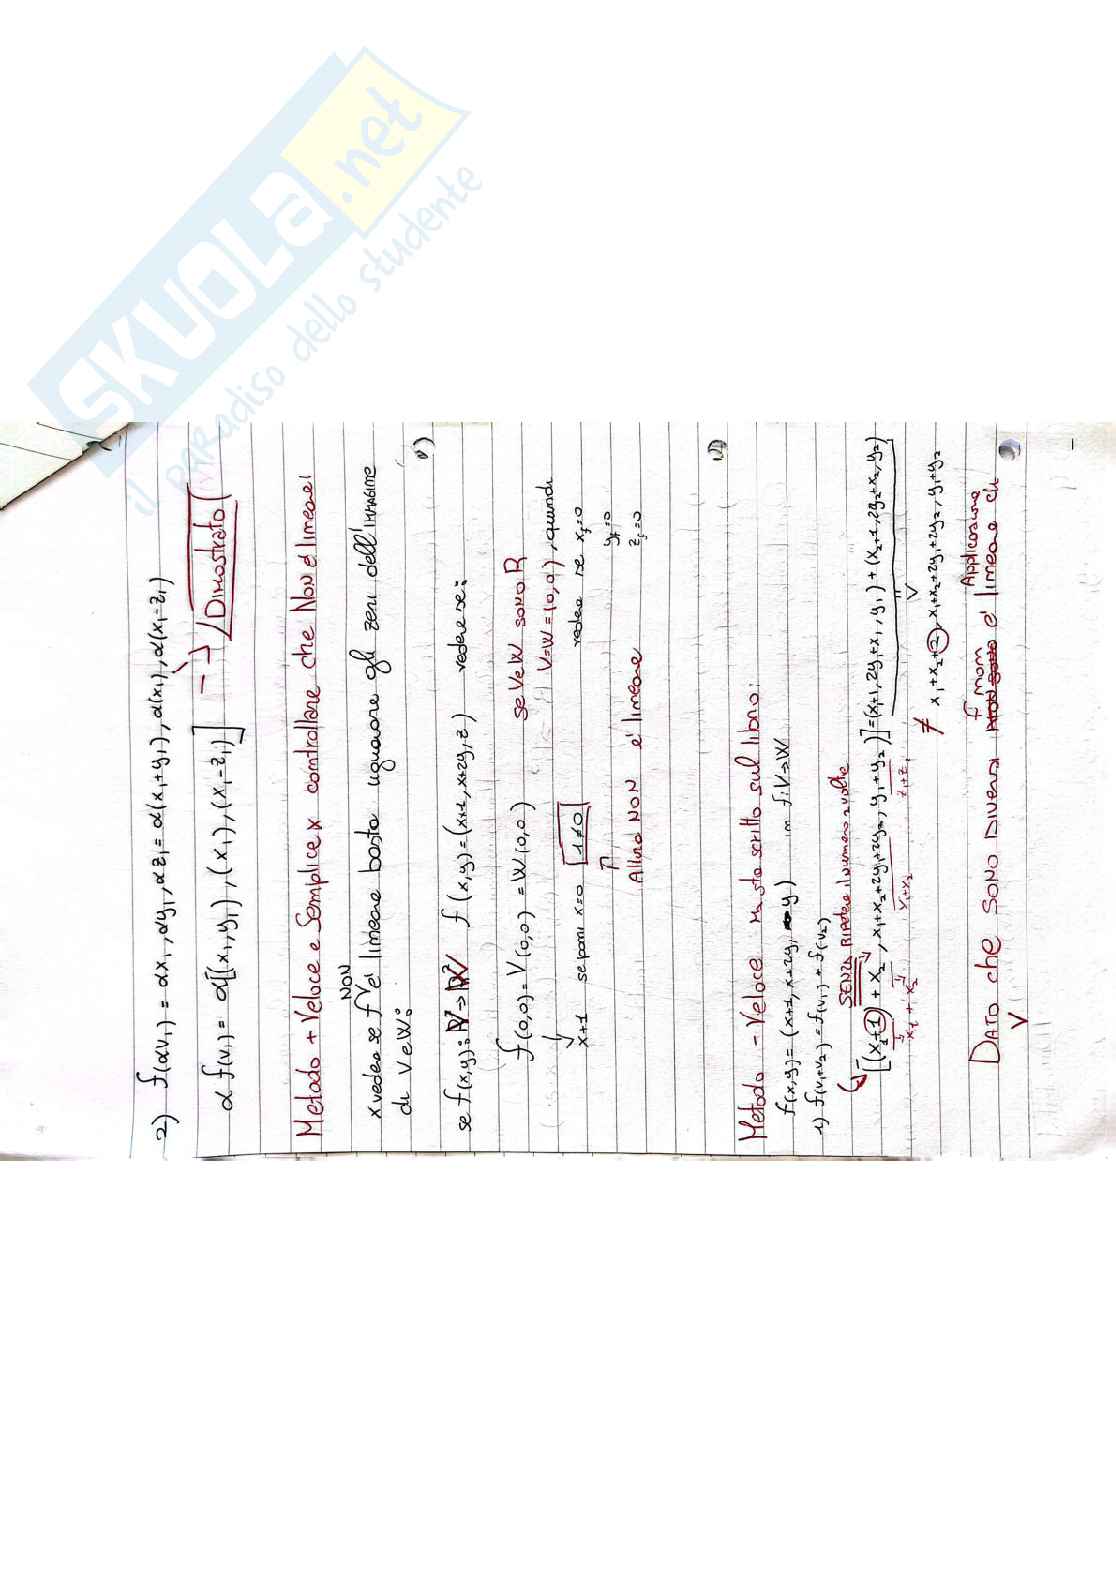 SKUOLA.net
il paradiso dello studente
2) f(αv₁) = αx₁, αy₁, αz₁ = α(x₁+y₁), α(x₁), α(x₁-z₁)
α f(v₁) = α[(x₁,y₁), (x₁), (x₁-z₁)] --> Dimostrato
Metodo + Veloce e Semplice x controllare che NON è lineare!
x vedere se f NON è lineare basta uguagliare gli zeri dell'IMMAGINE
di V e W:
se f(x,y): R²→R² f(x,y)=(x+1, x+2y, z) vedere se:
f(0,0) = V(0,0) = W(0,0) se V e W sono R
V=W=(0,0), quindi
x+1 se pomi x=0 1≠0 vedere se x=0
y=0
z=0
Allora NON è lineare
Metodo - Veloce ma sta scritto sul libro:
f(x,y) = (x+1, x+2y, y) in f:V→W
1) f(v₁+v₂) = f(v₁) + f(v₂)
SENZA RIPETERE il numero 2 volte
[(x₁+1) + x₂, x₁+x₂+2y₁+2y₂, y₁+y₂)] = (x₁+1, 2y₁+x₁, y₁) + (x₂+1, 2y₂+x₂, y₂)
x₁ + x₂
v₁+x₂
z₁+z₂
≠ x₁+x₂+2, x₁+x₂+2y₁+2y₂, y₁+y₂
DATO che SONO DIVERSI f non è lineare
Applicazione